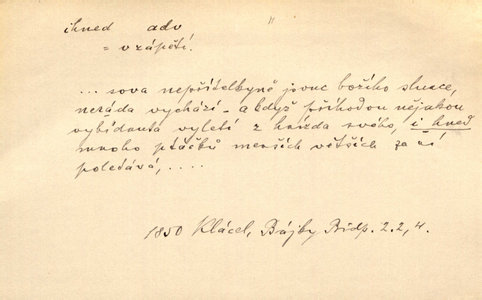 ihned adv "
= vzápětí.
... sova nepřítelbyně jsouc božího slunce,
neráda vychází - a když příhodou nějakou
vybídnuta vyletí z hnízda svého, i hned
mnoho ptáčků menších větších za ní
poletává, ....
1850 Klácel, Bájky Bidp. 2.2, 4.